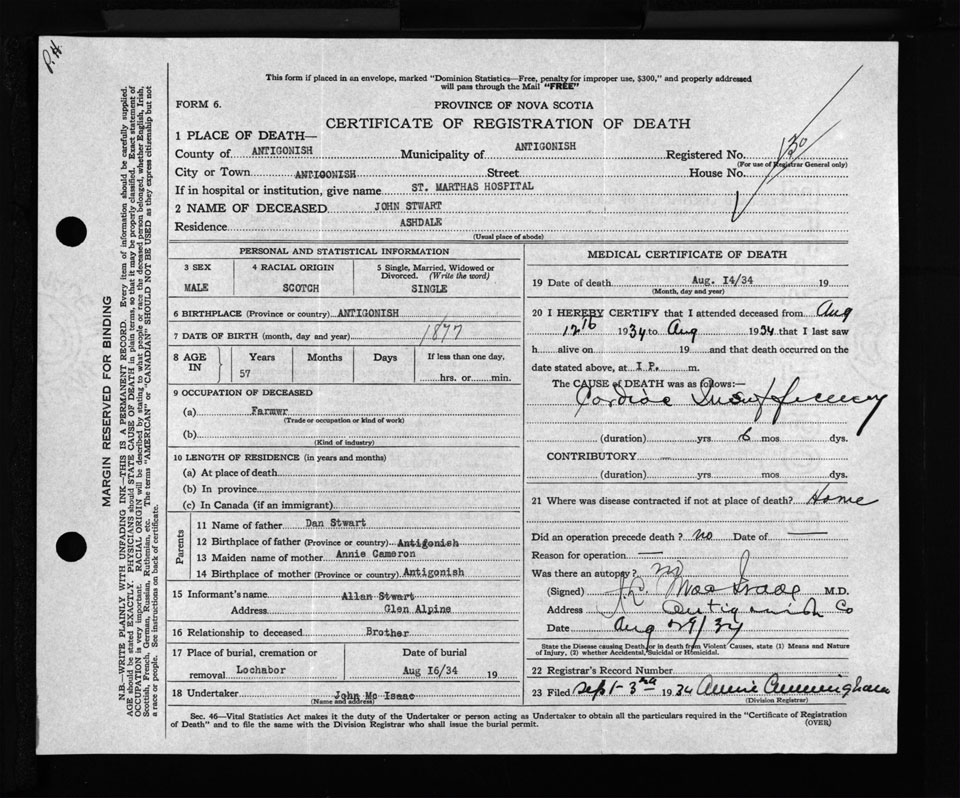 P.H
This form if placed in an envelope, marked "Dominion Statistics—Free, penalty for improper use, $300," and properly addressed
will pass through the Mail "FREE"
FORM 6.
PROVINCE OF NOVA SCOTIA
CERTIFICATE OF REGISTRATION OF DEATH
1 PLACE OF DEATH—
County of ANTIGONISH Municipality of ANTIGONISH Registered No. 130
(For use of Registrar General only)
City or Town ANTIGONISH Street House No.
If in hospital or institution, give name ST. MARTHAS HOSPITAL
2 NAME OF DECEASED JOHN STWART
Residence ASHDALE
(Usual place of abode)
MARGIN RESERVED FOR BINDING
N.B.—WRITE PLAINLY WITH UNFADING INK—THIS IS A PERMANENT RECORD. Every item of information should be carefully supplied.
AGE should be stated EXACTLY. PHYSICIANS should STATE CAUSE OF DEATH in plain terms, so that it may be properly classified. Exact statement of
OCCUPATION is very important. RACIAL ORIGIN will be described by stating to what people or race the deceased person belonged, whether English, Irish,
Scottish, French, German, Russian, Ruthenian, etc. The terms "AMERICAN" or "CANADIAN" SHOULD NOT BE USED as they express citizenship but not
a race or people. See instructions on back of certificate.
PERSONAL AND STATISTICAL INFORMATION
3 SEX 4 RACIAL ORIGIN 5 Single, Married, Widowed or
Divorced. (Write the word)
MALE SCOTCH SINGLE
6 BIRTHPLACE (Province or country) ANTIGONISH
7 DATE OF BIRTH (month, day and year) 1877
8 AGE IN Years Months Days If less than one day,
57 hrs. or min.
9 OCCUPATION OF DECEASED
(a) Farmwr
(Trade or occupation or kind of work)
(b)
(Kind of industry)
10 LENGTH OF RESIDENCE (in years and months)
(a) At place of death
(b) In province
(c) In Canada (if an immigrant)
Parents
11 Name of father Dan Stwart
12 Birthplace of father (Province or country) Antigonish
13 Maiden name of mother Annie Cameron
14 Birthplace of mother (Province or country) Antigonish
15 Informant's name Allan Stwart
Address Glen Alpine
16 Relationship to deceased Brother
17 Place of burial, cremation or Date of burial
removal Lochabor Aug I6/34 19
18 Undertaker John Mc Isaac
(Name and address)
MEDICAL CERTIFICATE OF DEATH
19 Date of death Aug. I4/34 19
(Month, day and year)
20 I HEREBY CERTIFY that I attended deceased from Aug
12th 1934 to Aug 1934 that I last saw
h alive on 19 and that death occurred on the
date stated above, at I P. m.
The CAUSE of DEATH was as follows:—
Cardiac Insufficiency
(duration) yrs 6 mos dys.
CONTRIBUTORY —
(duration) yrs mos dys.
21 Where was disease contracted if not at place of death? Home
Did an operation precede death? no Date of —
Reason for operation —
Was there an autopsy? no
(Signed) M.D.
Address Antigonish Co
Date Aug 29/34
State the Disease causing Death, or in death from Violent Causes, state (1) Means and Nature
of Injury, (2) whether Accidental, Suicidal or Homicidal.
22 Registrar's Record Number
23 Filed Sept - 3rd 1934 Annie Cunningham
(Division Registrar)
Sec. 46—Vital Statistics Act makes it the duty of the Undertaker or person acting as Undertaker to obtain all the particulars required in the "Certificate of Registration
of Death" and to file the same with the Division Registrar who shall issue the burial permit. (OVER)